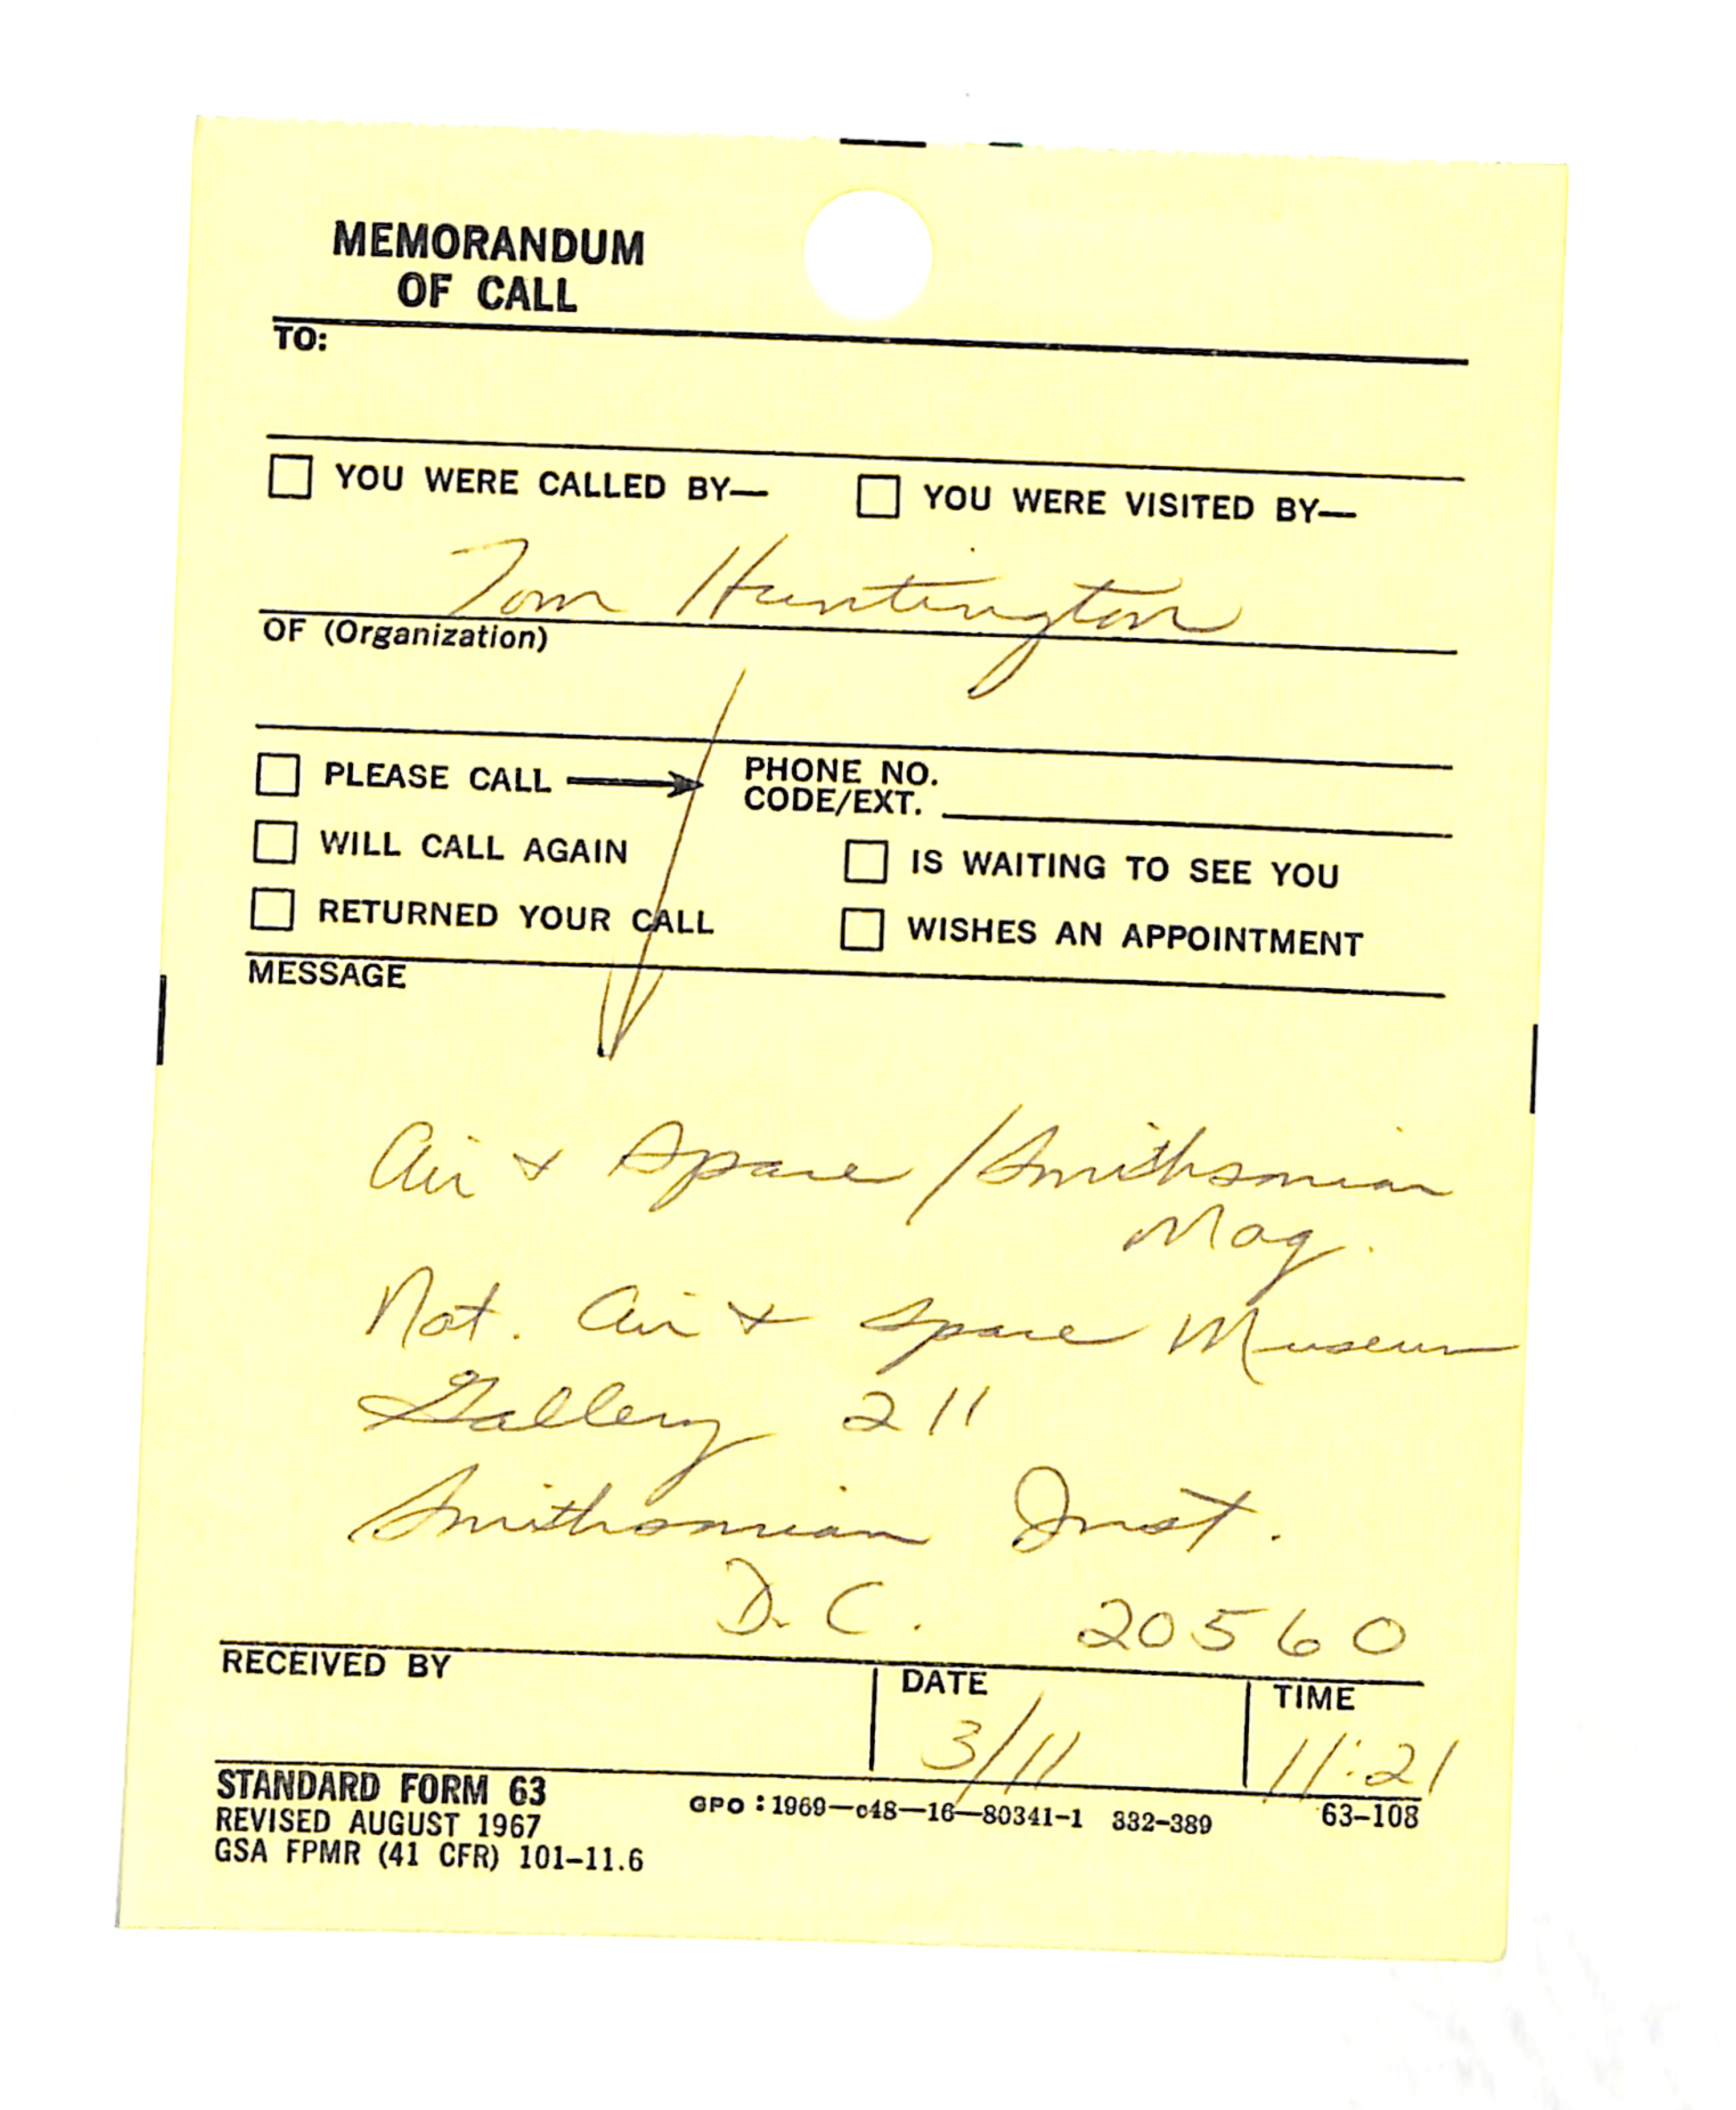 MEMORANDUM
OF CALL
TO:
YOU WERE CALLED BY— YOU WERE VISITED BY—
Tom Huntington
OF (Organization)
PLEASE CALL → PHONE NO.
CODE/EXT.
WILL CALL AGAIN IS WAITING TO SEE YOU
RETURNED YOUR CALL WISHES AN APPOINTMENT
MESSAGE
Air & Space / Smithsonian
Mag.
Nat. Air & Space Museum
Gallery 211
Smithsonian Inst.
D.C. 20560
RECEIVED BY DATE TIME
3/11 11:21
STANDARD FORM 63
REVISED AUGUST 1967
GSA FPMR (41 CFR) 101-11.6
GPO : 1969—c48—16—80341-1 332-389 63-108